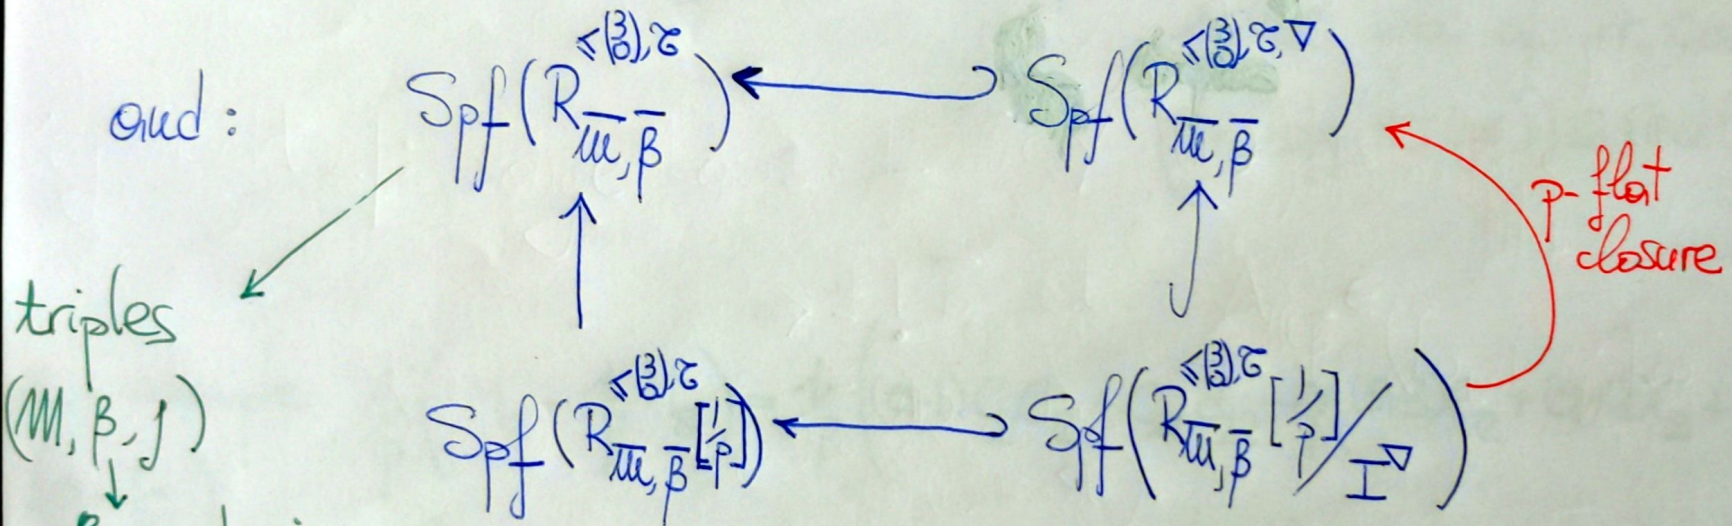 and: Spf(R_{\overline{𝔐},\overline{β}}^{≤(3 0),τ}) ← Spf(R_{\overline{𝔐},\overline{β}}^{≤(3 0),τ,∇})
p-flat
closure
triples
(𝔐, β, J)
↓
Spf(R_{\overline{𝔐},\overline{β}}^{≤(3 0),τ}[1/p]) ← Spf(R_{\overline{𝔐},\overline{β}}^{≤(3 0),τ}[1/p]/I^∇)